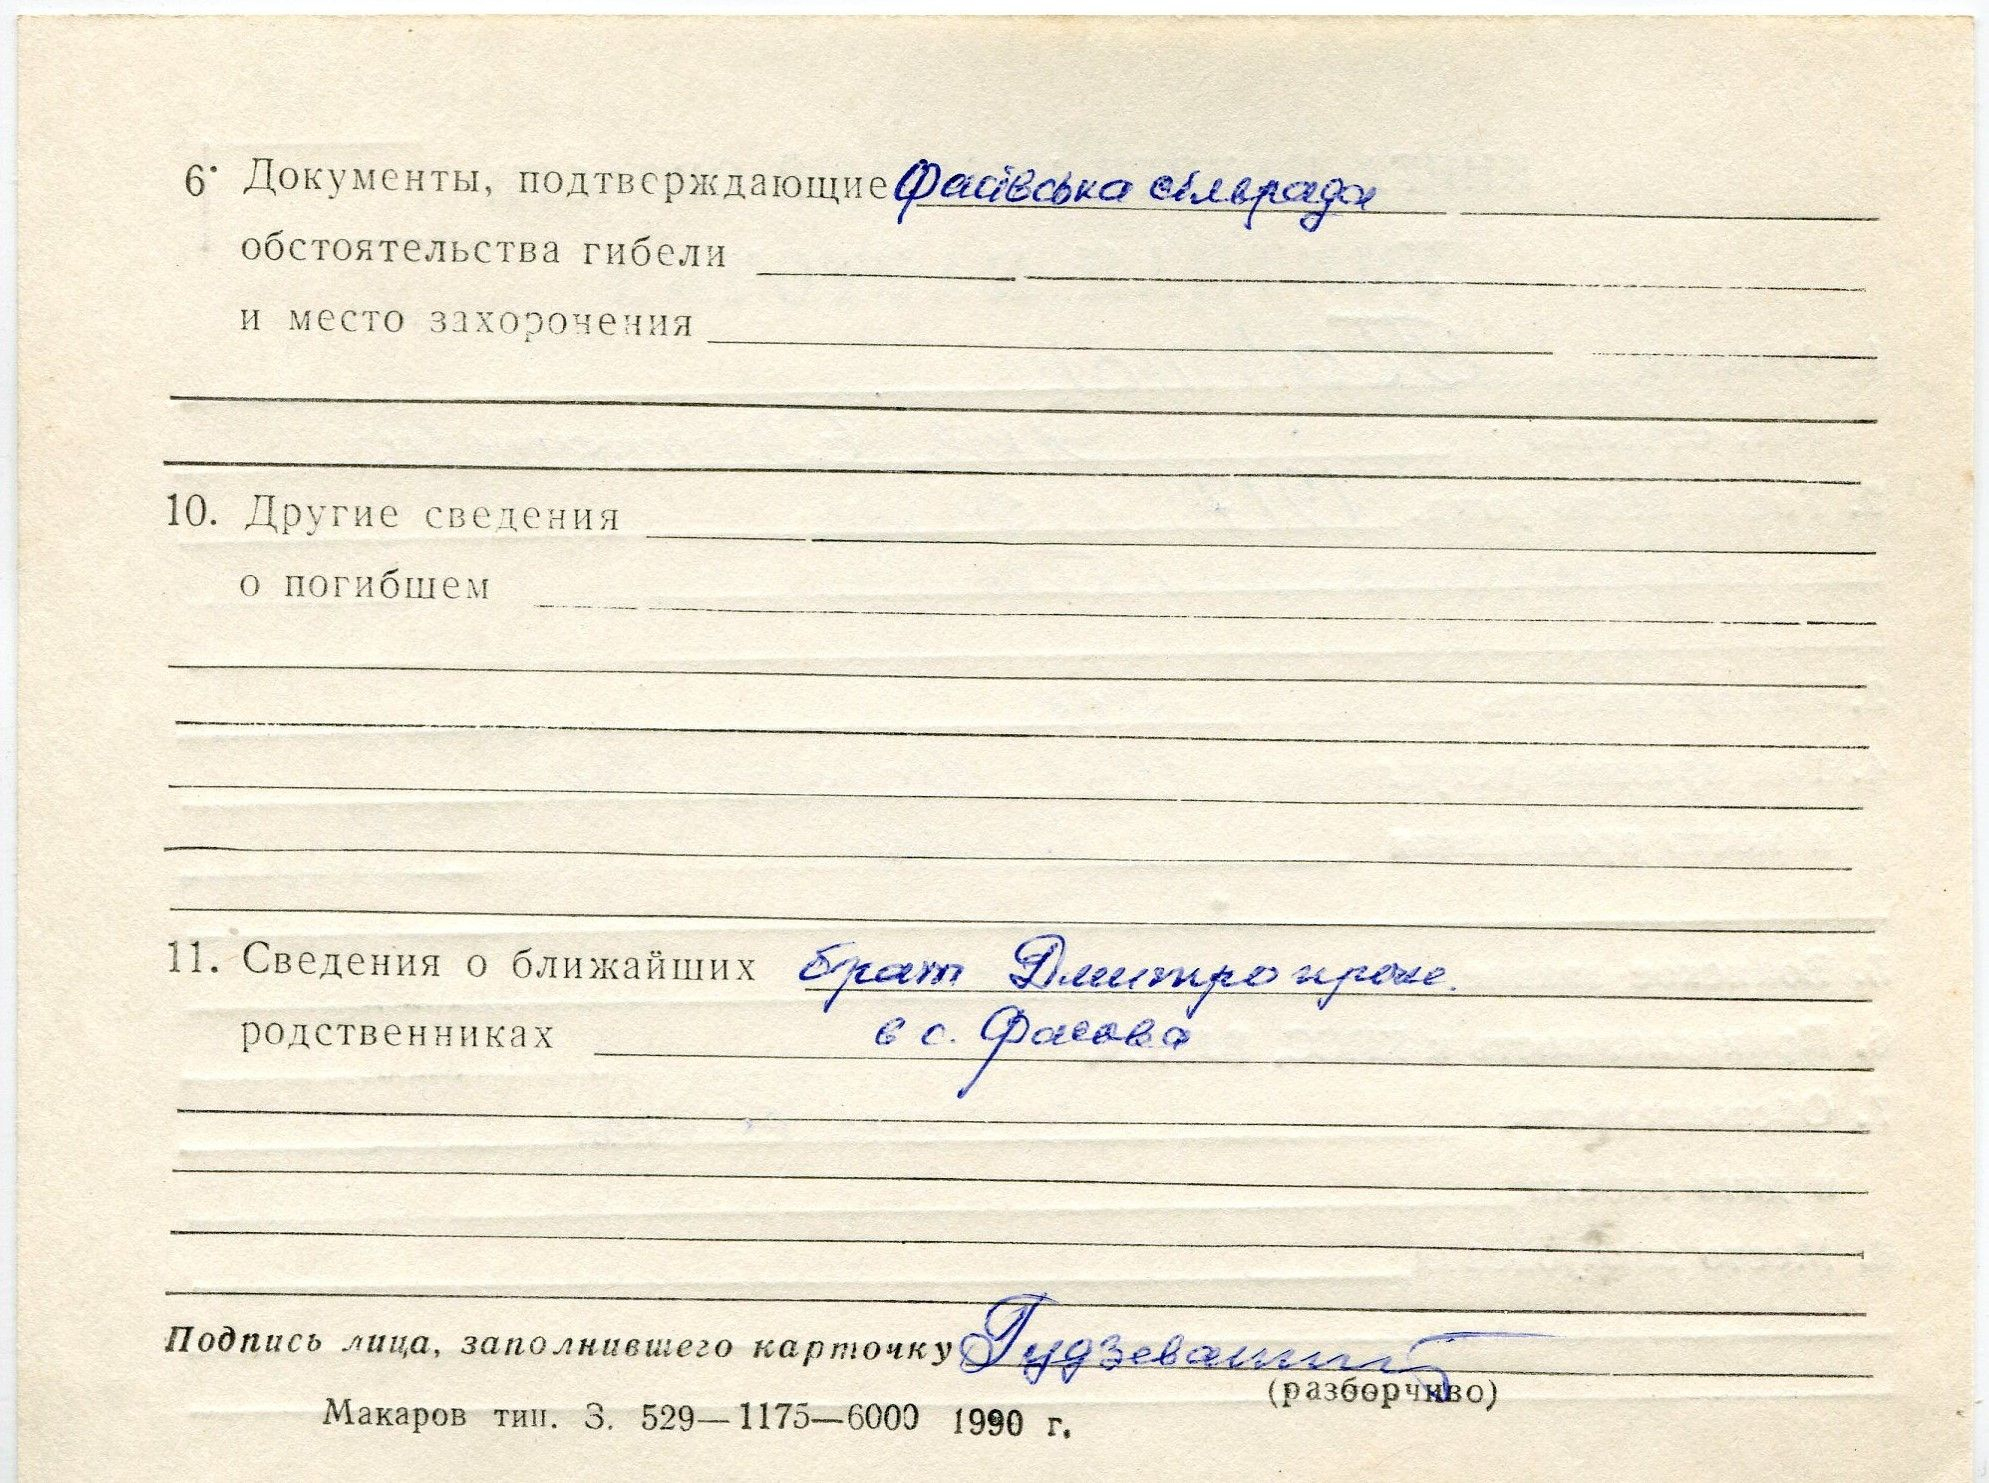 6. Документы, подтверждающие Фасівська сільрада
обстоятельства гибели
и место захоронения
10. Другие сведения
о погибшем
11. Сведения о ближайших брат Дмитро прож.
родственниках в с. Фасова
Подпись лица, заполнившего карточку
(разборчиво)
Макаров тип. З. 529—1175—6000 1990 г.